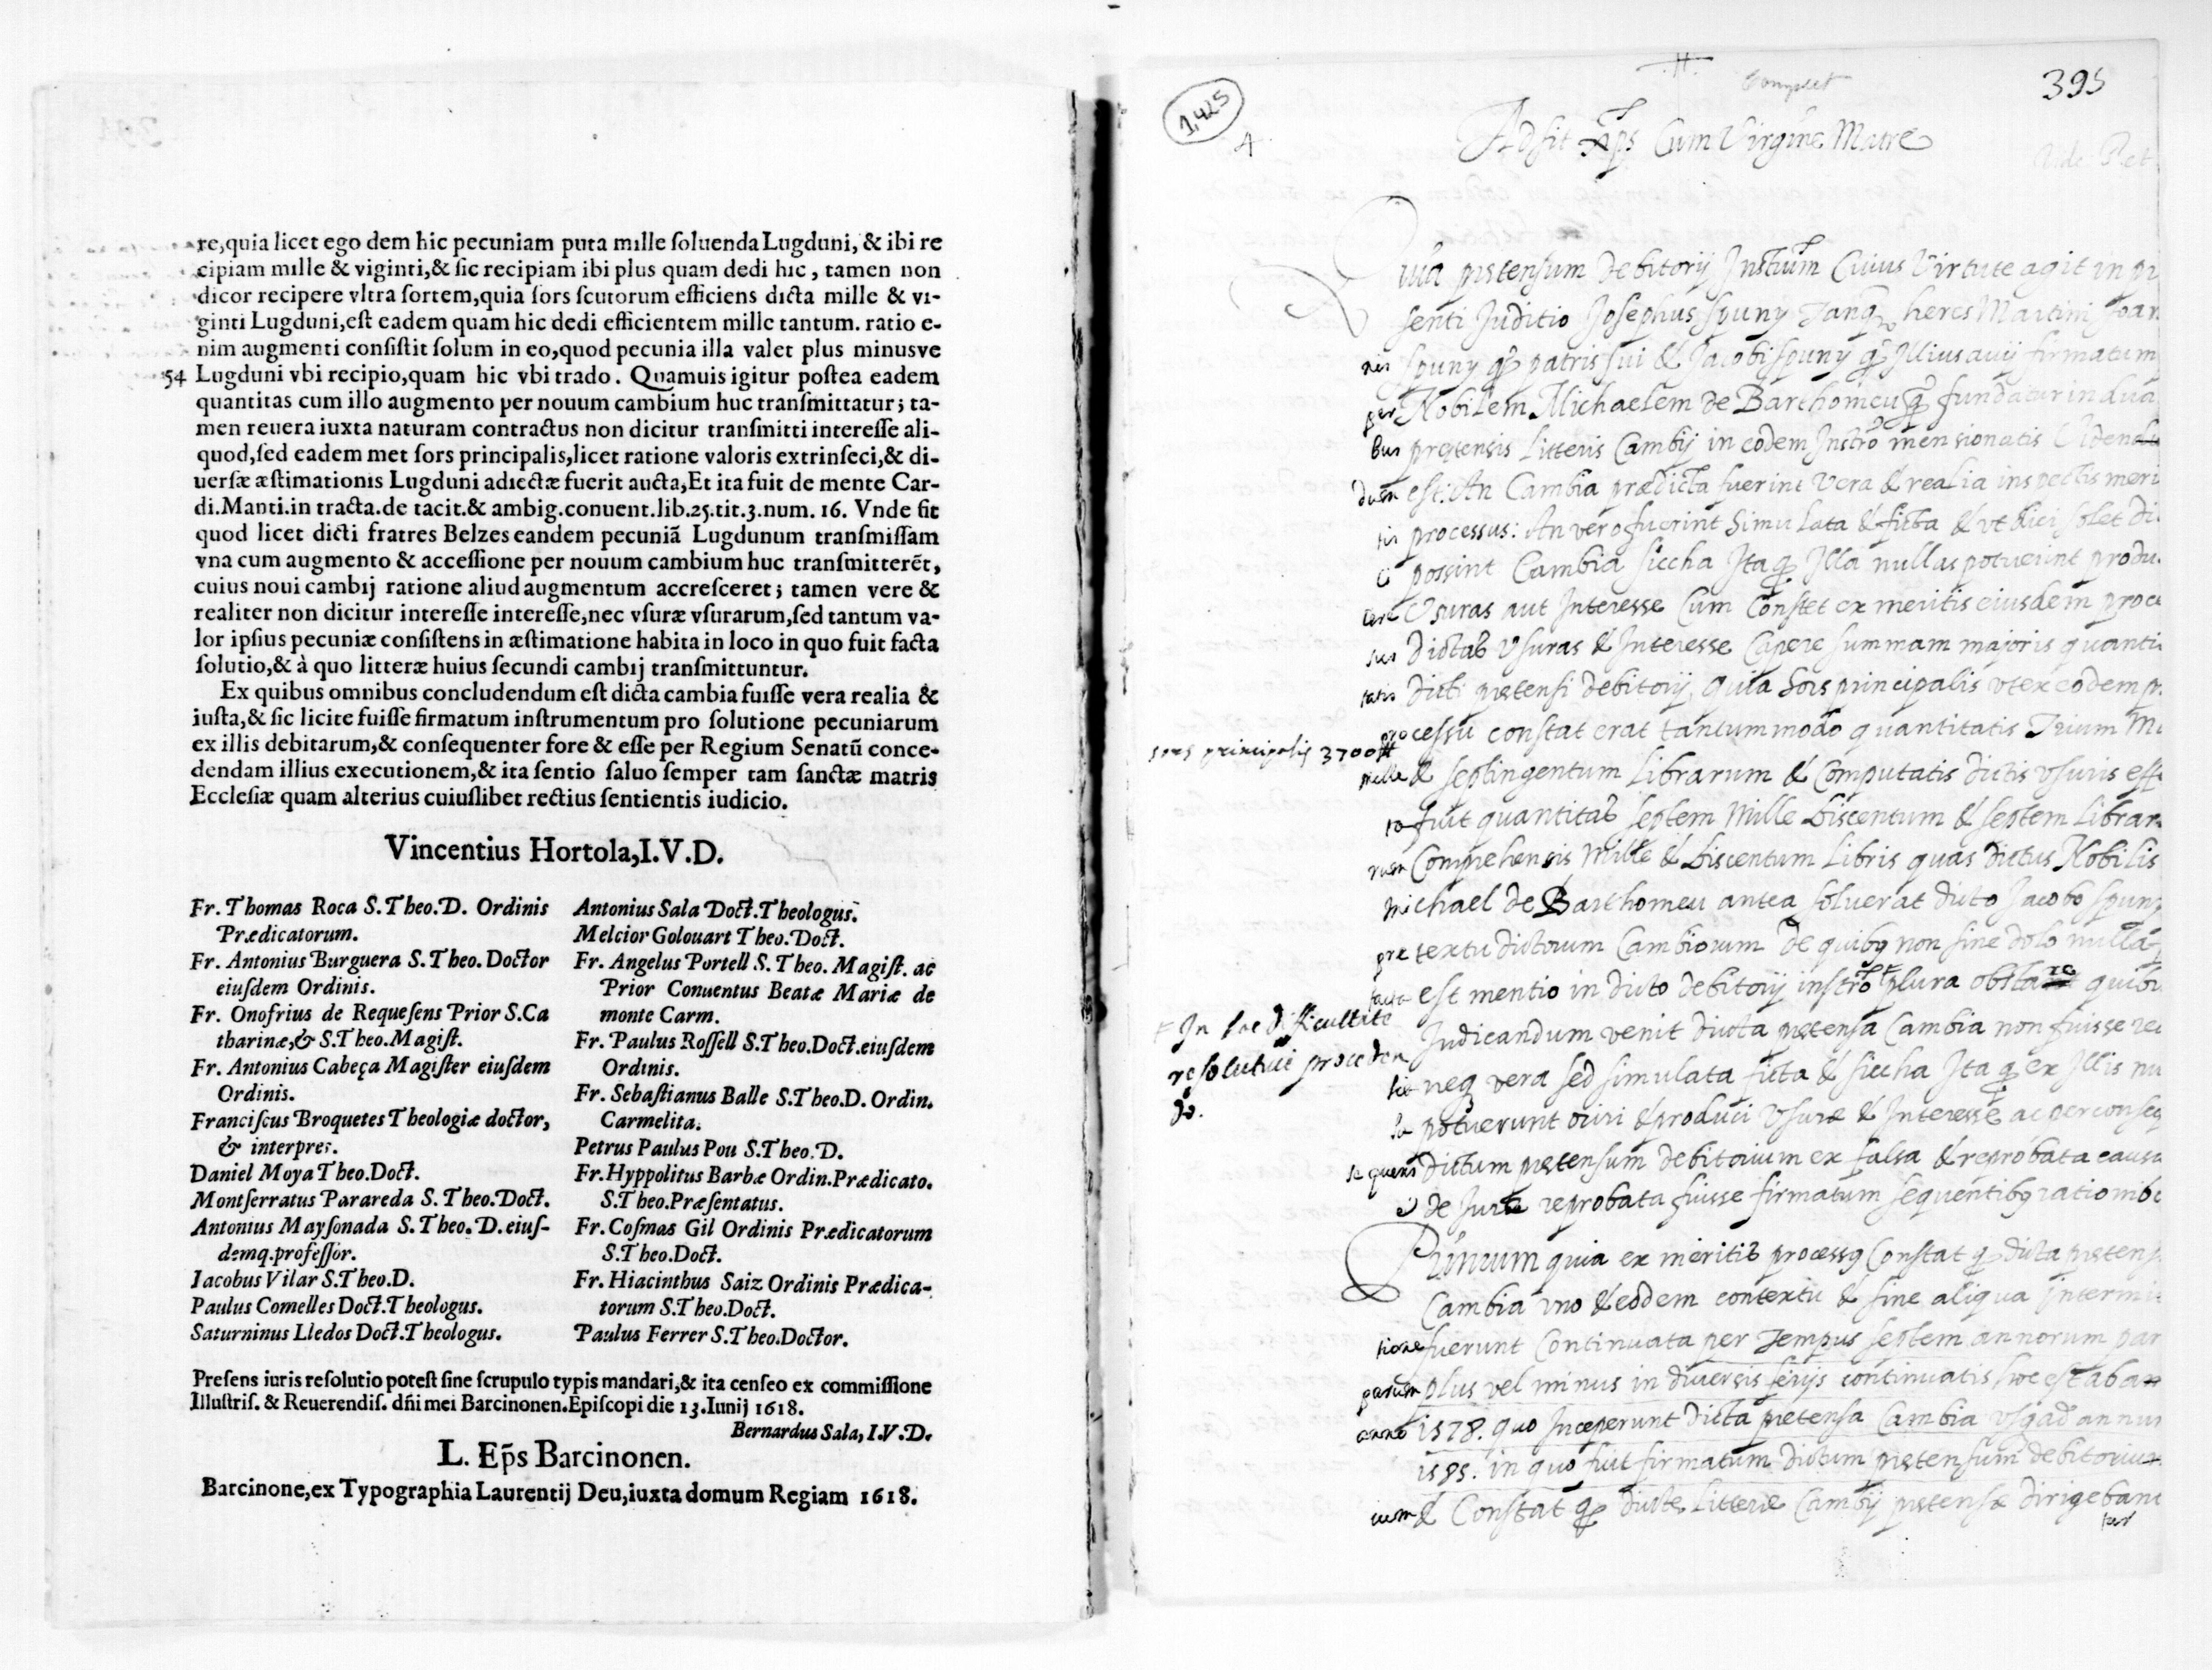 re,quia licet ego dem hic pecuniam puta mille ſoluenda Lugduni, & ibi re
cipiam mille & viginti,& ſic recipiam ibi plus quam dedi hic, tamen non
dicor recipere vltra ſortem,quia ſors ſcutorum efficiens dicta mille & vi-
ginti Lugduni,eſt eadem quam hic dedi efficientem mille tantum. ratio e-
nim augmenti conſiſtit ſolum in eo,quod pecunia illa valet plus minusve
54 Lugduni vbi recipio,quam hic vbi trado. Quamuis igitur poſtea eadem
quantitas cum illo augmento per nouum cambium huc tranſmittatur; ta-
men reuera iuxta naturam contractus non dicitur tranſmitti intereſſe ali-
quod,ſed eadem met ſors principalis,licet ratione valoris extrinſeci,& di-
uerſæ æſtimationis Lugduni adiectæ fuerit aucta,Et ita fuit de mente Car-
di.Manti.in tracta.de tacit.& ambig.conuent.lib.25.tit.3.num. 16. Vnde fit
quod licet dicti fratres Belzes eandem pecuniã Lugdunum tranſmiſſam
vna cum augmento & acceſſione per nouum cambium huc tranſmitterẽt,
cuius noui cambij ratione aliud augmentum accreſceret; tamen vere &
realiter non dicitur intereſſe intereſſe,nec vſuræ vſurarum,ſed tantum va-
lor ipſius pecuniæ conſiſtens in æſtimatione habita in loco in quo fuit facta
ſolutio,& à quo litteræ huius ſecundi cambij tranſmittuntur.
Ex quibus omnibus concludendum eſt dicta cambia fuiſſe vera realia &
iuſta,& ſic licite fuiſſe firmatum inſtrumentum pro ſolutione pecuniarum
ex illis debitarum,& conſequenter fore & eſſe per Regium Senatũ conce-
dendam illius executionem,& ita ſentio ſaluo ſemper tam ſanctæ matris
Eccleſiæ quam alterius cuiuſlibet rectius ſentientis iudicio.
Vincentius Hortola,I.V.D.
Fr. Thomas Roca S.Theo.D. Ordinis
Prædicatorum.
Fr. Antonius Burguera S.Theo.Doctor
eiuſdem Ordinis.
Fr. Onofrius de Requeſens Prior S.Ca
tharinæ,& S.Theo.Magiſt.
Fr. Antonius Cabeça Magiſter eiuſdem
Ordinis.
Franciſcus Broquetes Theologiæ doctor,
& interpres.
Daniel Moya Theo.Doct.
Montſerratus Parareda S.Theo.Doct.
Antonius Mayſonada S.Theo.D.eiuſ-
demq.profeſſor.
Iacobus Vilar S.Theo.D.
Paulus Comelles Doct.Theologus.
Saturninus Lledos Doct.Theologus.
Antonius Sala Doct.Theologus.
Melcior Golouart Theo.Doct.
Fr. Angelus Portell S.Theo. Magiſt. ac
Prior Conuentus Beatæ Mariæ de
monte Carm.
Fr. Paulus Roſſell S.Theo.Doct.eiuſdem
Ordinis.
Fr. Sebaſtianus Balle S.Theo.D. Ordin.
Carmelita.
Petrus Paulus Pou S.Theo.D.
Fr.Hyppolitus Barbæ Ordin.Prædicato.
S.Theo.Præſentatus.
Fr. Coſmas Gil Ordinis Prædicatorum
S.Theo.Doct.
Fr. Hiacinthus Saiz Ordinis Prædica-
torum S.Theo.Doct.
Paulus Ferrer S.Theo.Doctor.
Preſens iuris reſolutio poteſt ſine ſcrupulo typis mandari,& ita cenſeo ex commiſſione
Illuſtriſ. & Reuerendiſ. dñi mei Barcinonen.Epiſcopi die 13.Iunij 1618.
Bernardus Sala, I.V.D.
L. Ep̃s Barcinonen.
Barcinone,ex Typographia Laurentij Deu,iuxta domum Regiam 1618.
1,425
A
Complet
395
Adsit Xp̃s Cum Virgine Matre
Quia pretensum debitorij Instrum Cuius Virtute agit in
senti Juditio Josephus spuny Tanq heres Martini Joan
nis spuny q patris sui & Jacobi spuny q Illius auij firmatum
per Nobilem Michaelem de Barthomeu q fundatur in dua
bus pretensis Litteris Cambij in eodem Instro mensionatis Viden
dum est: An Cambia prædicta fuerint Vera & realia inspectis meri
tis processus: An vero fuerint Simulata & ficta & vt dici solet di
ci possint Cambia siccha Ita q Illa nullas potuerint produ
cere Vsuras aut Interesse Cum Constet ex meritis eiusdem proce
sus dictas Vsuras & Interesse Capere summam majoris quanti
tatis dicti pretensi debitorij, quia Sors principalis vt ex eodem
processu constat erat tantum modo quantitatis Trium
sors principalis 3700
mille & septingentum Librarum & Computatis dictis vsuris
fuit quantitas septem Mille biscentum & septem Librar
rum Comprehensis Mille & biscentum Libris quas dictus Nobilis
Michael de Barthomeu antea soluerat dicto Jacobo spuny
pretextu dictorum Cambiorum de quibus non sine dolo nulla
facta est mentio in dicto debitorij instro plura obsta quibu
In hac difficultate
resolutiue proceden
do.
Judicandum venit dicta pretensa Cambia non fuisse
neq vera sed simulata ficta & siccha Ita q ex Illis
potuerunt oriri & produci Vsuræ & Interesse ac per conseq
dictum pretensum debitorium ex falsa & reprobata causa
& de Jure reprobata fuisse firmatum sequentibus rationib
Primum quia ex meritis processus Constat q dicta pretens
Cambia vno & eodem contextu & sine aliqua intermi
tione fuerunt Continuata per Tempus septem annorum par
parum plus vel minus in diuersis ferijs continuatis hoc est ab an
anno 1578. quo Inceperunt dicta pretensa Cambia vsq ad annu
1585. in quo fuit firmatum dictum pretensum debitoriu
& Constat q dictæ Litteræ Cambij pretensæ dirigeban
tur